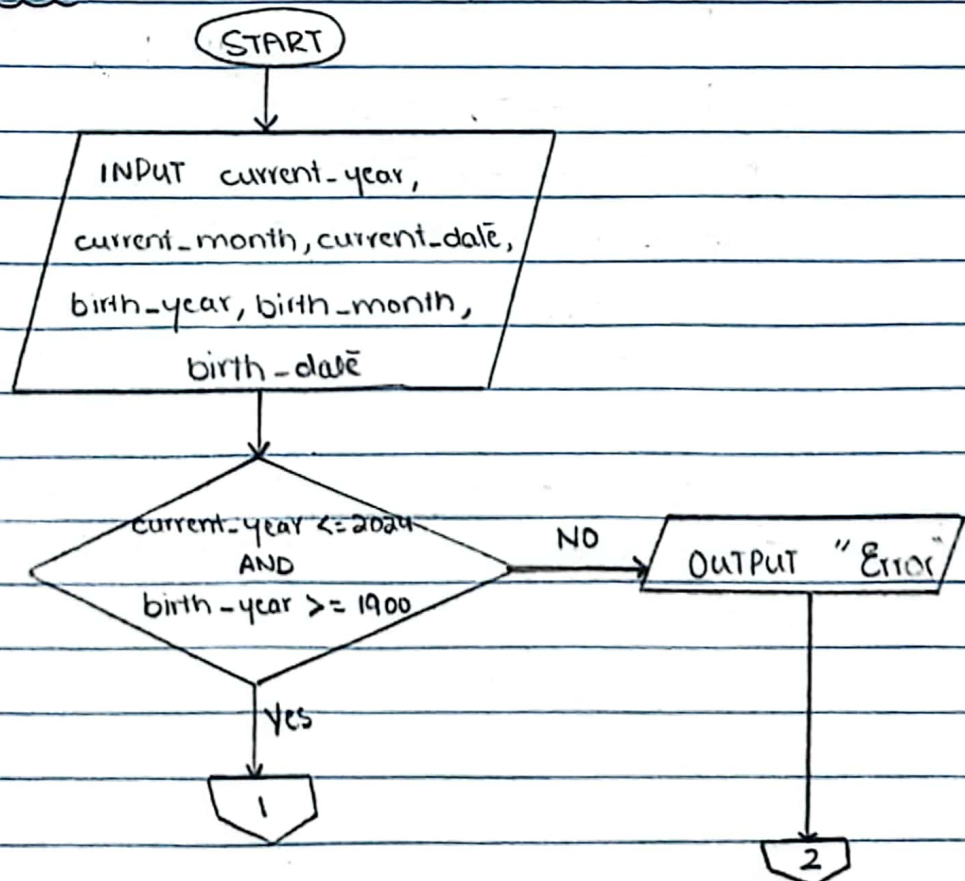 START
INPUT current_year,
current_month, current_date,
birth_year, birth_month,
birth_date
current_year <= 2024
AND
birth_year >= 1900
NO
OUTPUT "Error"
Yes
1
2